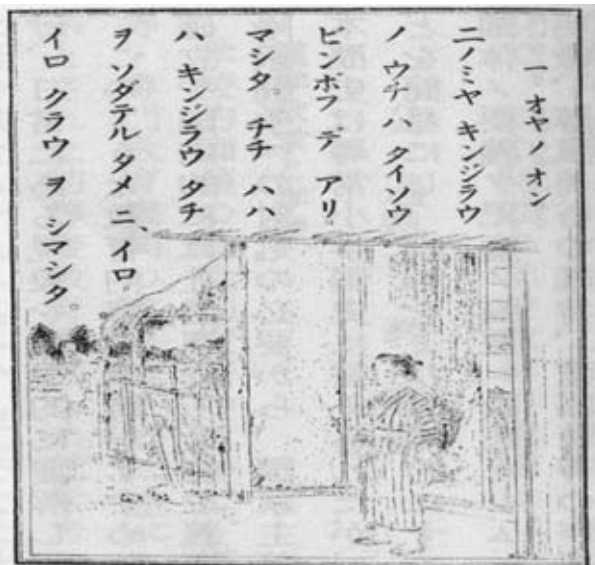 一 オヤノオン
ニノミヤ キンジラウ
ノ ウチハ タイソウ
ビンボフ デ アリ
マシタ。チチ ハハ
ハ キンジラウ タチ
ヲ ソダテル タメ ニ、イロ
イロ クラウ ヲ シマシタ。